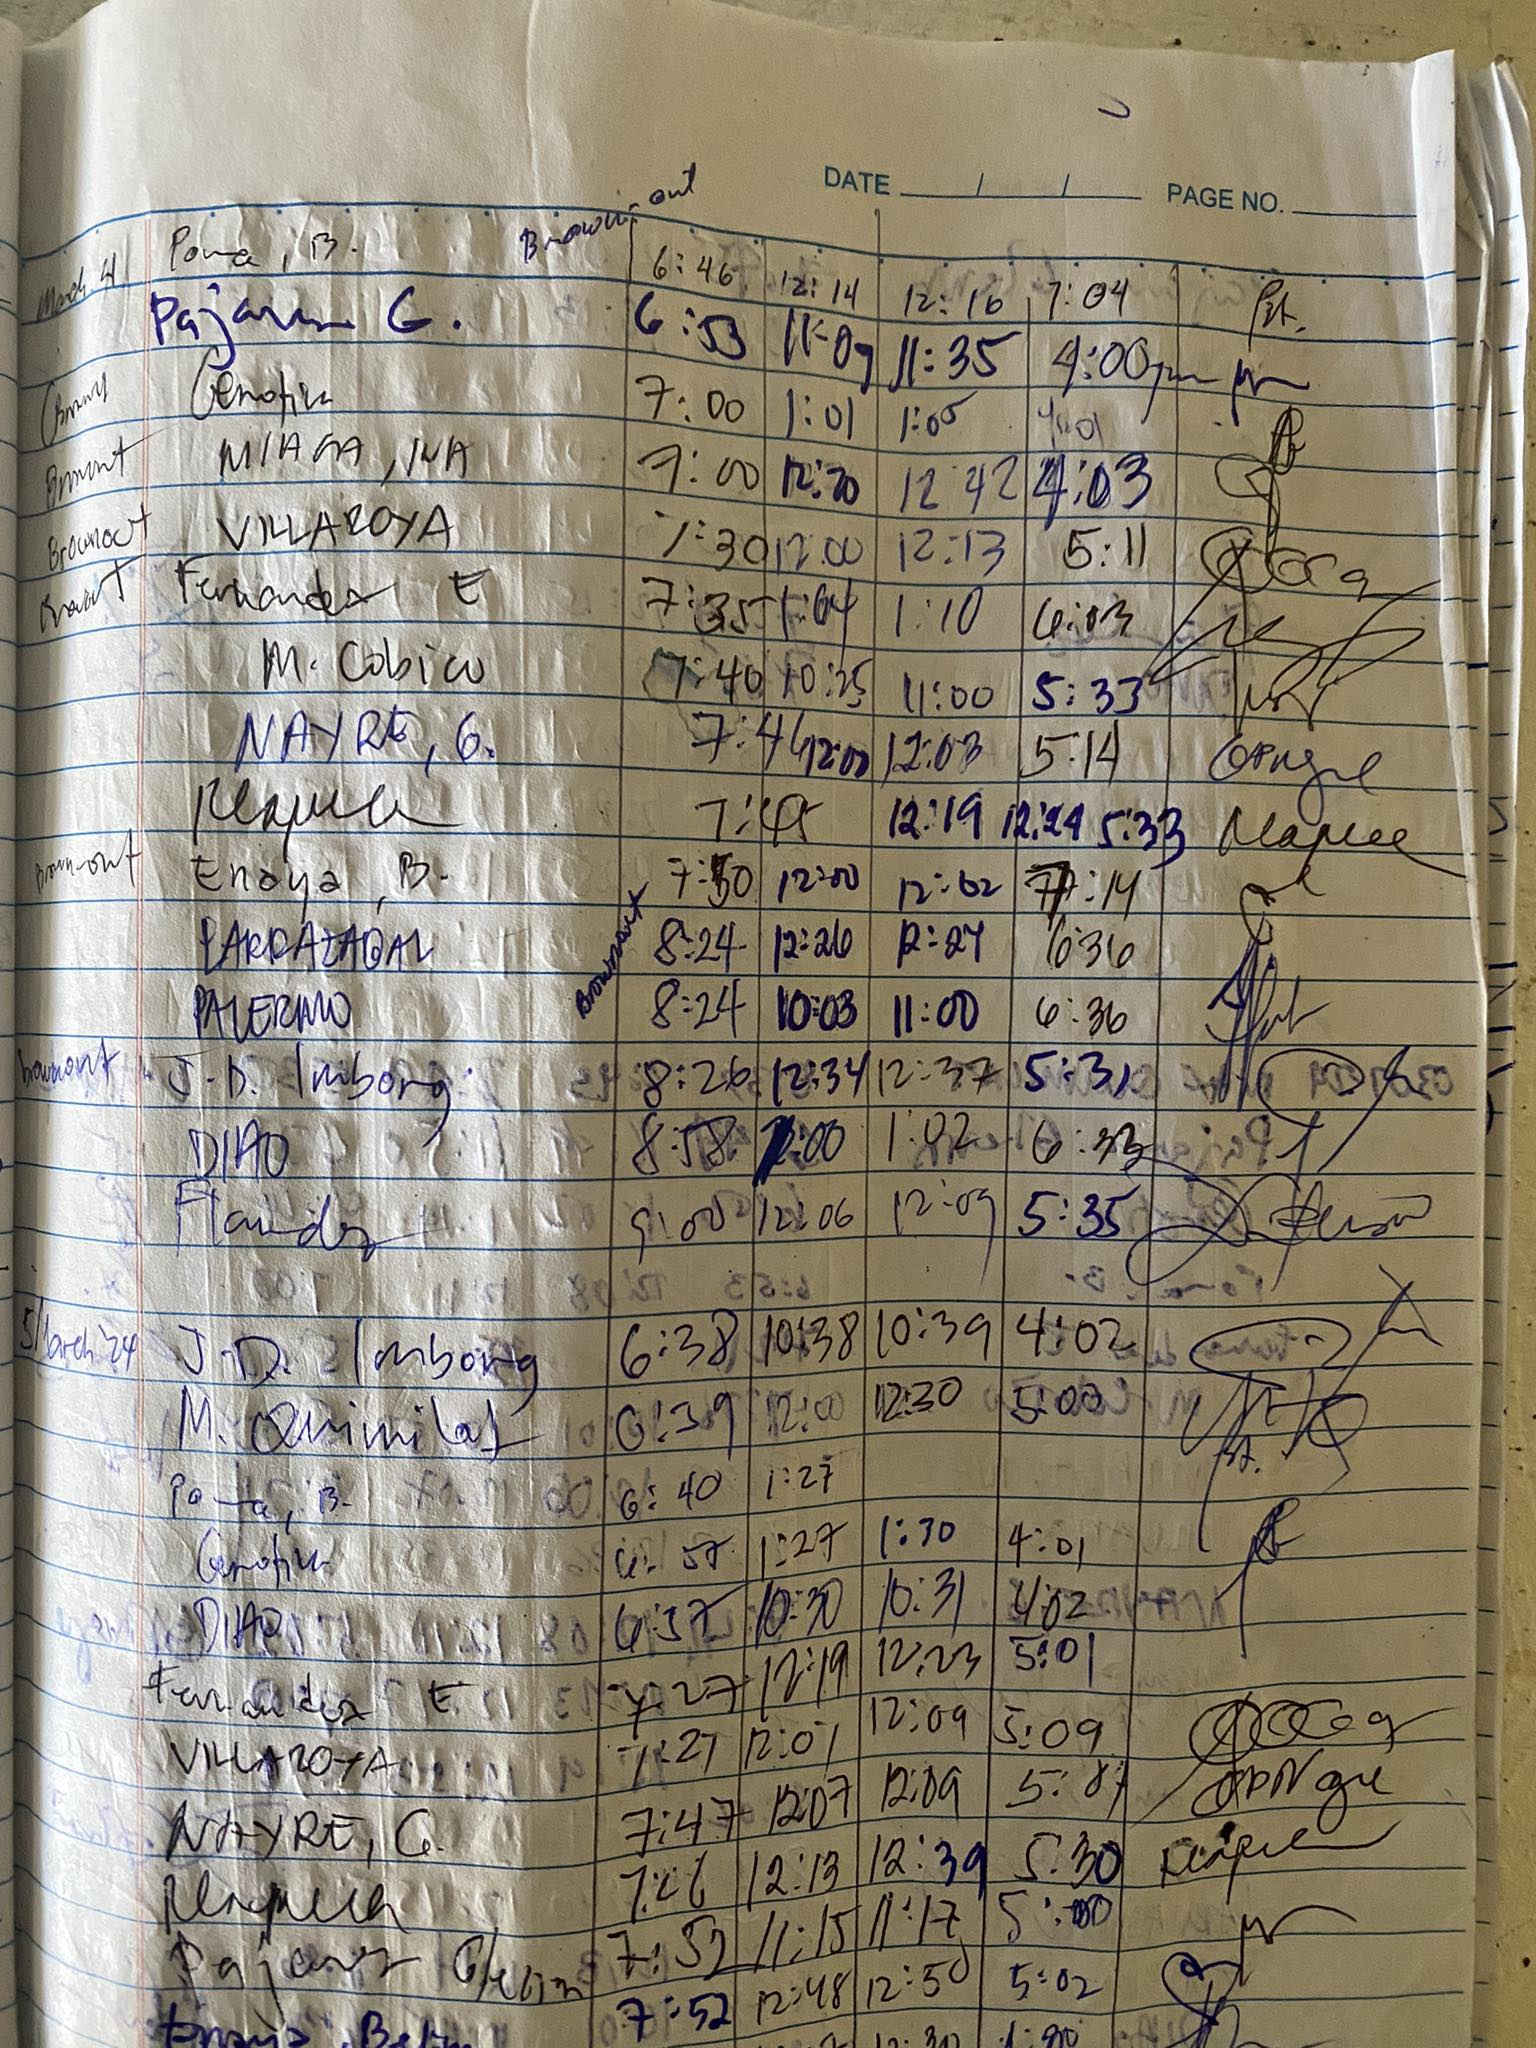 DATE ___/___/___ PAGE NO. ___
Brown-out
March 4 Poma, B. 6:46 12:14 12:16 7:04
Pajares G. 6:53 11:09 11:35 4:00pm
7:00 1:01 1:05 4:01
Brownout MIAGA, INA 7:00 12:20 12:42 4:03
Brownout VILLAROYA 7:30 12:00 12:13 5:11
Brownout Fernandez E 7:35 1:04 1:10 6:03
M. Cobico 7:40 10:25 11:00 5:33
NAYRE, G. 7:46 12:00 12:03 5:14
7:45 12:19 12:24 5:33
Brown-out Enaya, B. 7:50 12:00 12:02 7:14
LARRAZABAL Brownout 8:24 12:26 12:27 6:36
PALERMO 8:24 10:03 11:00 6:36
brownout J.D. Imbong 8:26 12:34 12:37 5:31
DIAO 8:58 12:00 1:02 6:33
9:00 12:06 12:09 5:35
5/March '24 J.D. Imbong 6:38 10:38 10:39 4:02
M. Quimilat 6:39 12:00 12:30 5:00
Poma, B. 6:40 1:27
6:57 1:27 1:30 4:01
DIAO 6:57 10:30 10:31 4:02
Fernandez E 7:27 12:19 12:23 5:01
VILLAROYA 7:27 12:07 12:09 5:09
NAYRE, G. 7:47 12:07 12:09 5:07
7:46 12:13 12:39 5:30
Pajares G 7:52 11:15 11:17 5:00
Enaya, 7:52 12:48 12:50 5:02
12:30